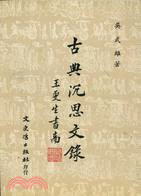 吳武雄著
古典沉思文錄
王更生書耑
文史哲出版社印行